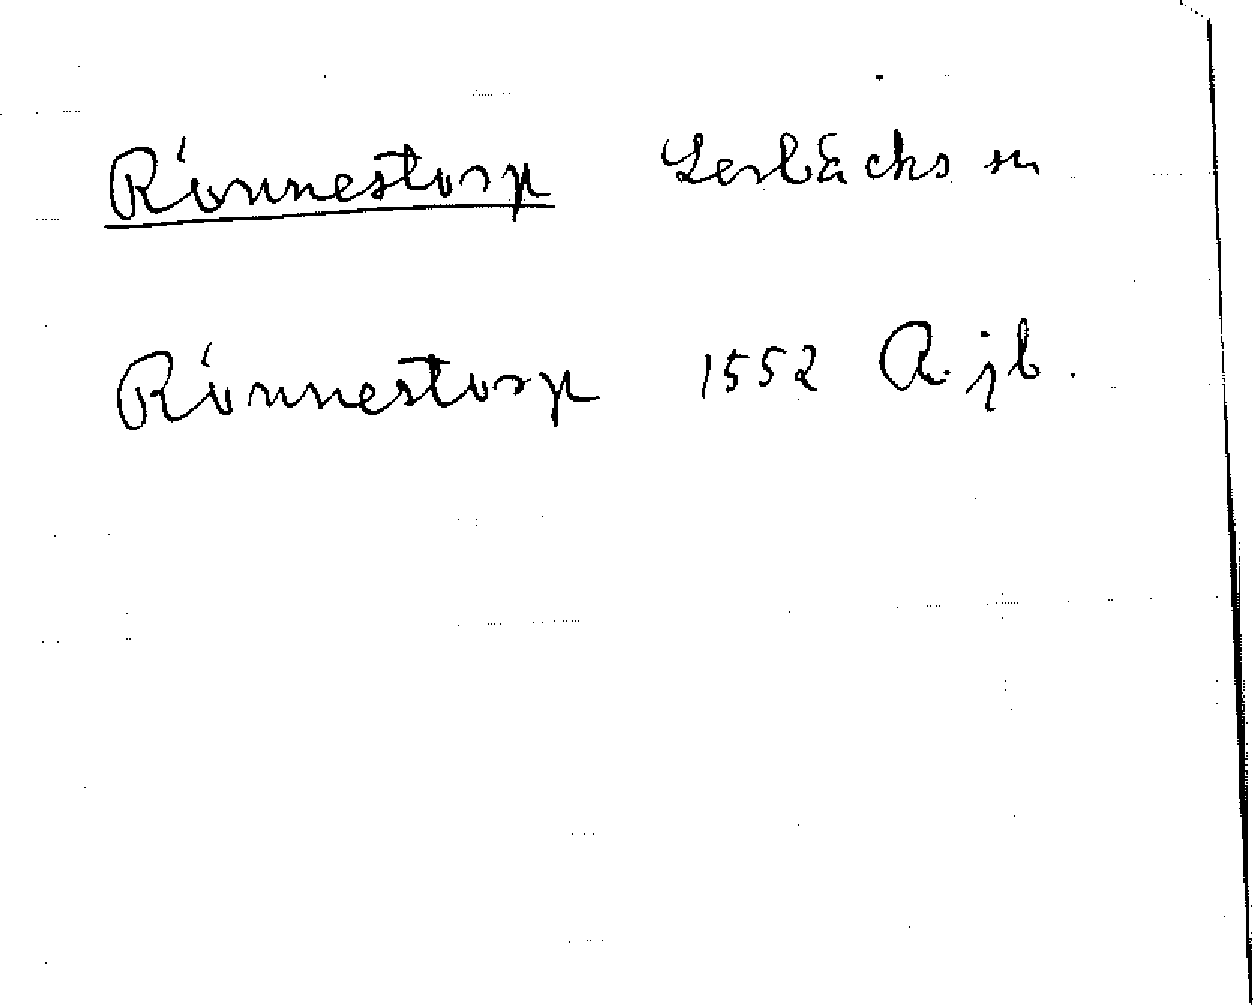 Rönnestorp Lerbäcks sn
Rönnestorp 1552 R. jb.